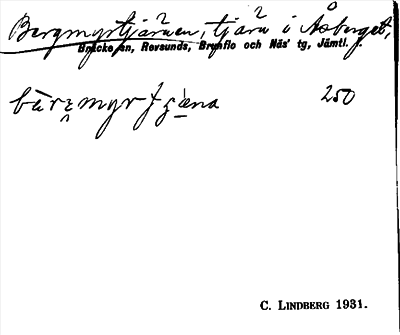 Bergmyrtjärnen, tjärn i Åsberget,
Bräcke en, Revsunds, Brunflo och Näs' tg, Jämtl. l.
250
C. LINDBERG 1931.